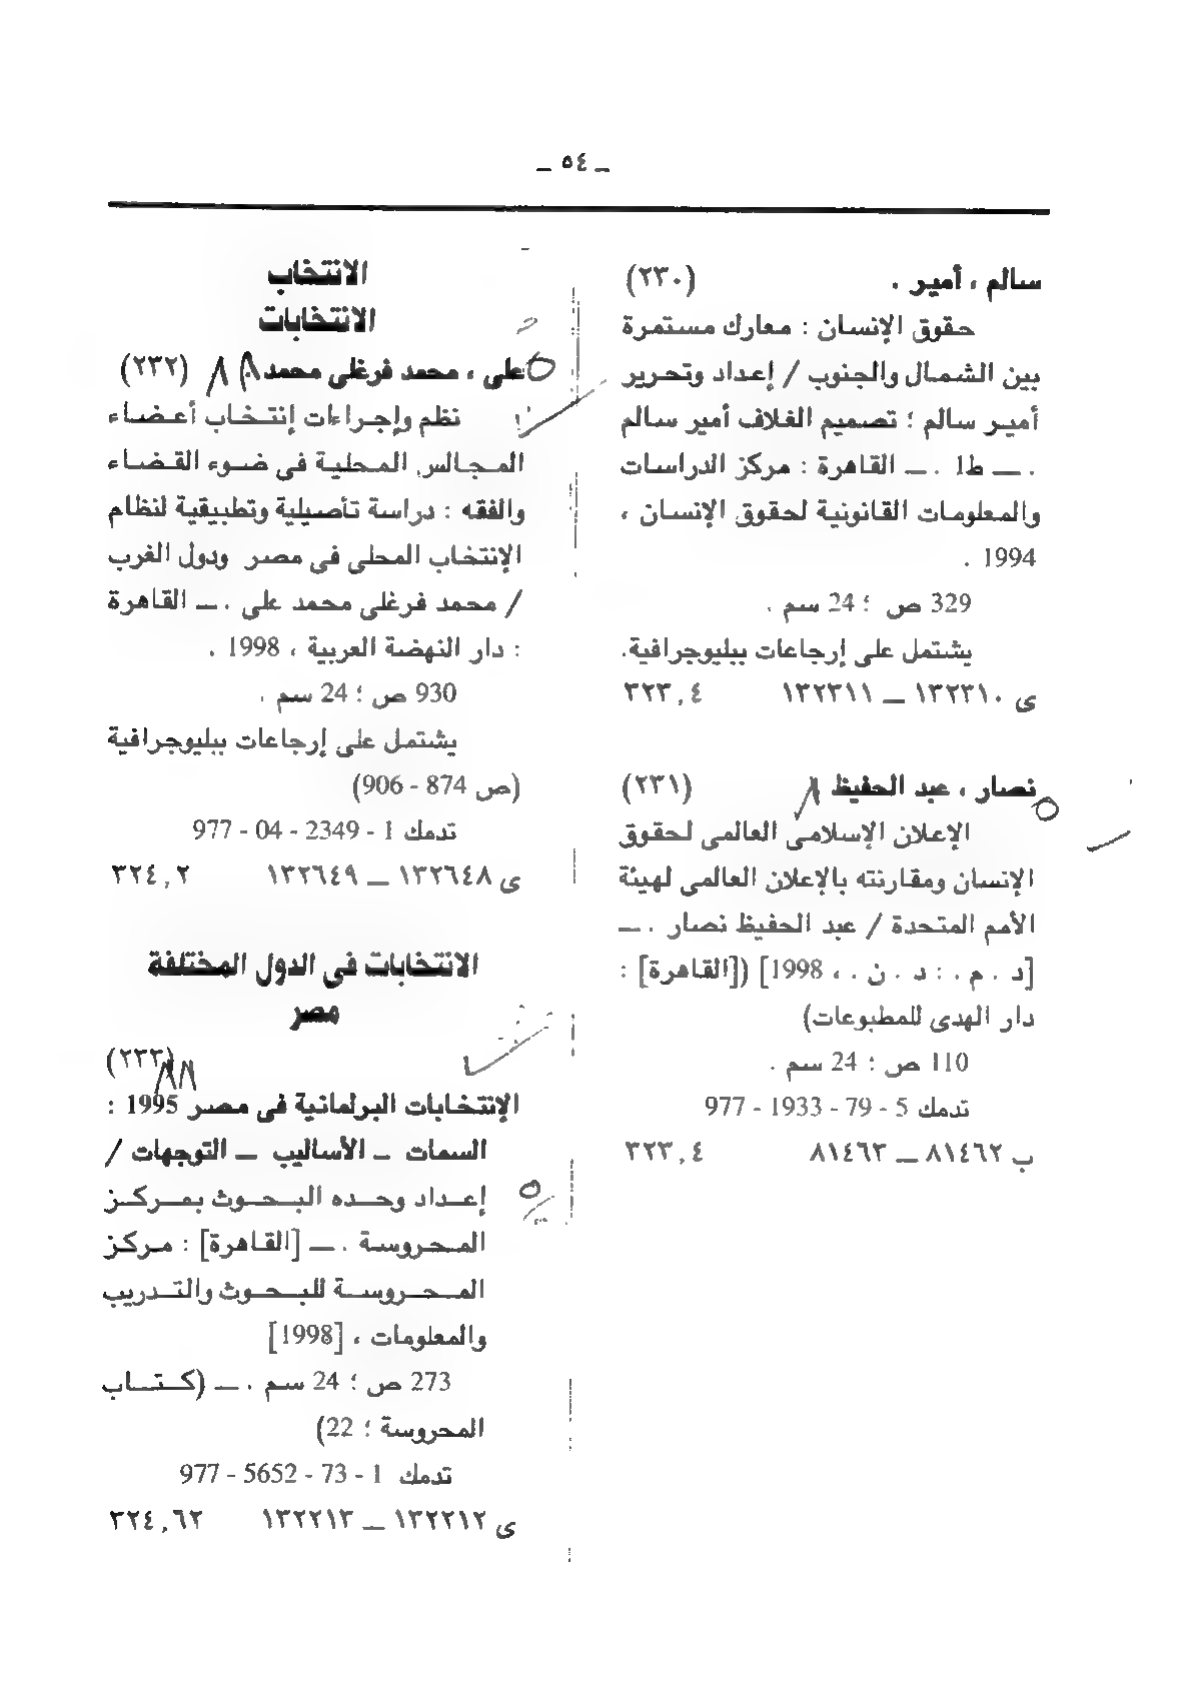 ـ ٥٤ ـ
سالم ، أمير . (٢٣٠)
حقوق الإنسان : معارك مستمرة
بين الشمال والجنوب / إعداد وتحرير
أمير سالم ؛ تصميم الغلاف أمير سالم
. ــ ط1 . ــ القاهرة : مركز الدراسات
والمعلومات القانونية لحقوق الإنسان ،
1994 .
329 ص ؛ 24 سم .
يشتمل على إرجاعات ببليوجرافية.
ى ١٣٢٣١٠ ــ ١٣٢٣١١ ٣٢٣,٤
نصار ، عبد الحفيظ (٢٣١)
الإعلان الإسلامى العالمى لحقوق
الإنسان ومقارنته بالإعلان العالمى لهيئة
الأمم المتحدة / عبد الحفيظ نصار . ــ
[د . م . : د . ن . ، 1998] ([القاهرة] :
دار الهدى للمطبوعات)
110 ص ؛ 24 سم .
تدمك 5 - 79 - 1933 - 977
ب ٨١٤٦٢ ــ ٨١٤٦٣ ٣٢٣,٤
الانتخاب
الانتخابات
على ، محمد فرغلى محمد ٨٨ (٢٣٢)
نظم وإجراءات إنتخاب أعضاء
المجالس المحلية فى ضوء القضاء
والفقه : دراسة تأصيلية وتطبيقية لنظام
الإنتخاب المحلى فى مصر ودول الغرب
/ محمد فرغلى محمد على . ــ القاهرة
: دار النهضة العربية ، 1998 .
930 ص ؛ 24 سم .
يشتمل على إرجاعات ببليوجرافية
(ص 874 - 906)
تدمك 1 - 2349 - 04 - 977
ى ١٣٢٦٤٨ ــ ١٣٢٦٤٩ ٣٢٤,٢
الانتخابات فى الدول المختلفة
مصر
(٢٣٣)
٨٨
الإنتخابات البرلمانية فى مصر 1995 :
السمات ــ الأساليب ــ التوجهات /
إعداد وحده البحوث بمركز
المحروسة . ــ [القاهرة] : مركز
المحروسة للبحوث والتدريب
والمعلومات ، [1998]
273 ص ؛ 24 سم . ــ (كتاب
المحروسة ؛ 22)
تدمك 1 - 73 - 5652 - 977
ى ١٣٢٢١٢ ــ ١٣٢٢١٣ ٣٢٤,٦٢